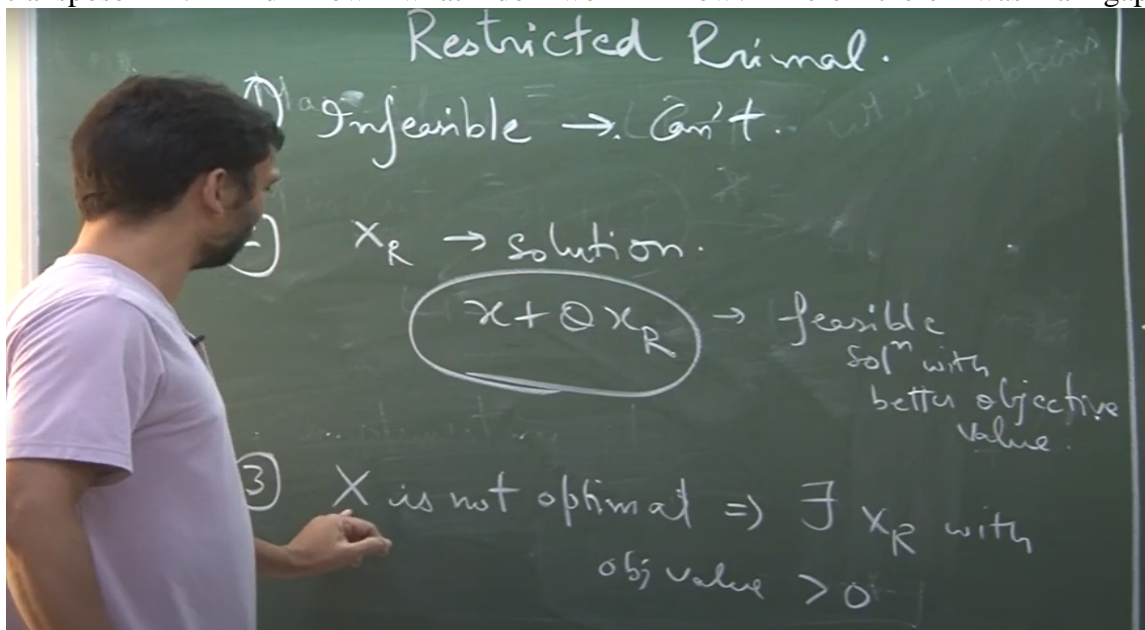 Restricted Primal.
1) Infeasible → Can't.
x_R → solution.
x + θ x_R → feasible
solⁿ with
better objective
value.
3) X is not optimal ⇒ ∃ x_R with
obj value > 0